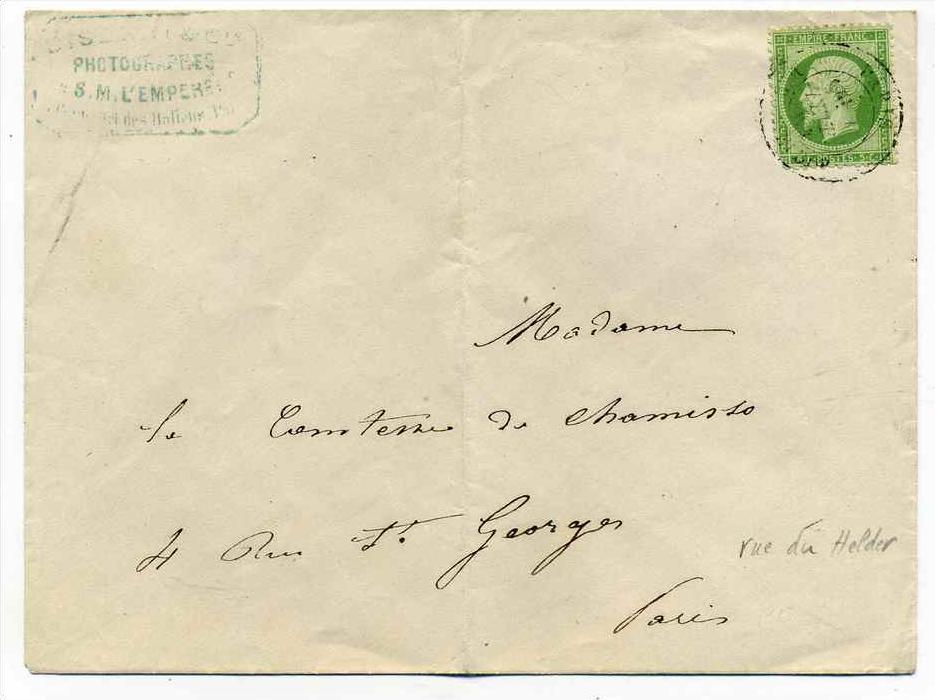 PHOTOGRAPHES
S. M. L'EMPER
des Italiens
EMPIRE FRANC
POSTES 5 C
Madame
la Comtesse de Chamisso
4 Rue St. Georges
rue du Helder
Paris